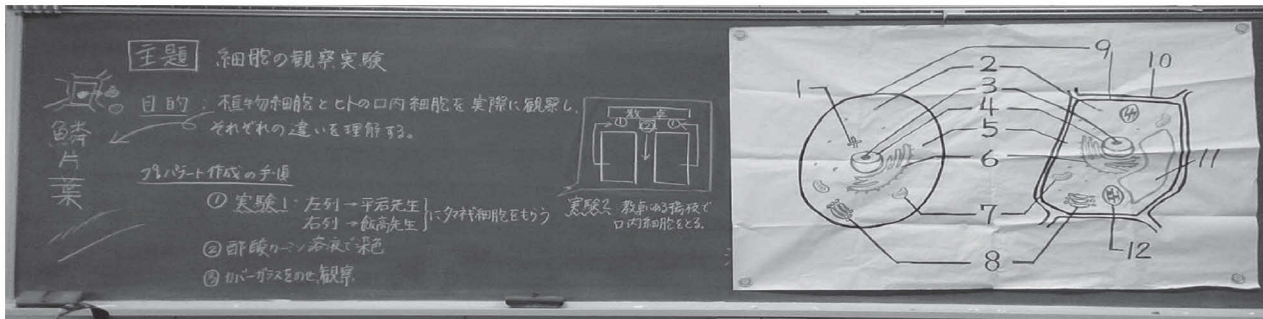 主題 細胞の観察実験
目的：植物細胞とヒトの口内細胞を実際に観察し、
それぞれの違いを理解する。
鱗片葉
プレパラート作成の手順
① 実験1：左列→平岩先生
右列→飯高先生
にタマネギ細胞をもらう
② 酢酸カーミン溶液で染色
③ カバーガラスをのせ、観察
教卓
① ② ①
実験2 教卓にある楊枝で
口内細胞をとる。
1
2
3
4
5
6
7
8
9
10
11
12